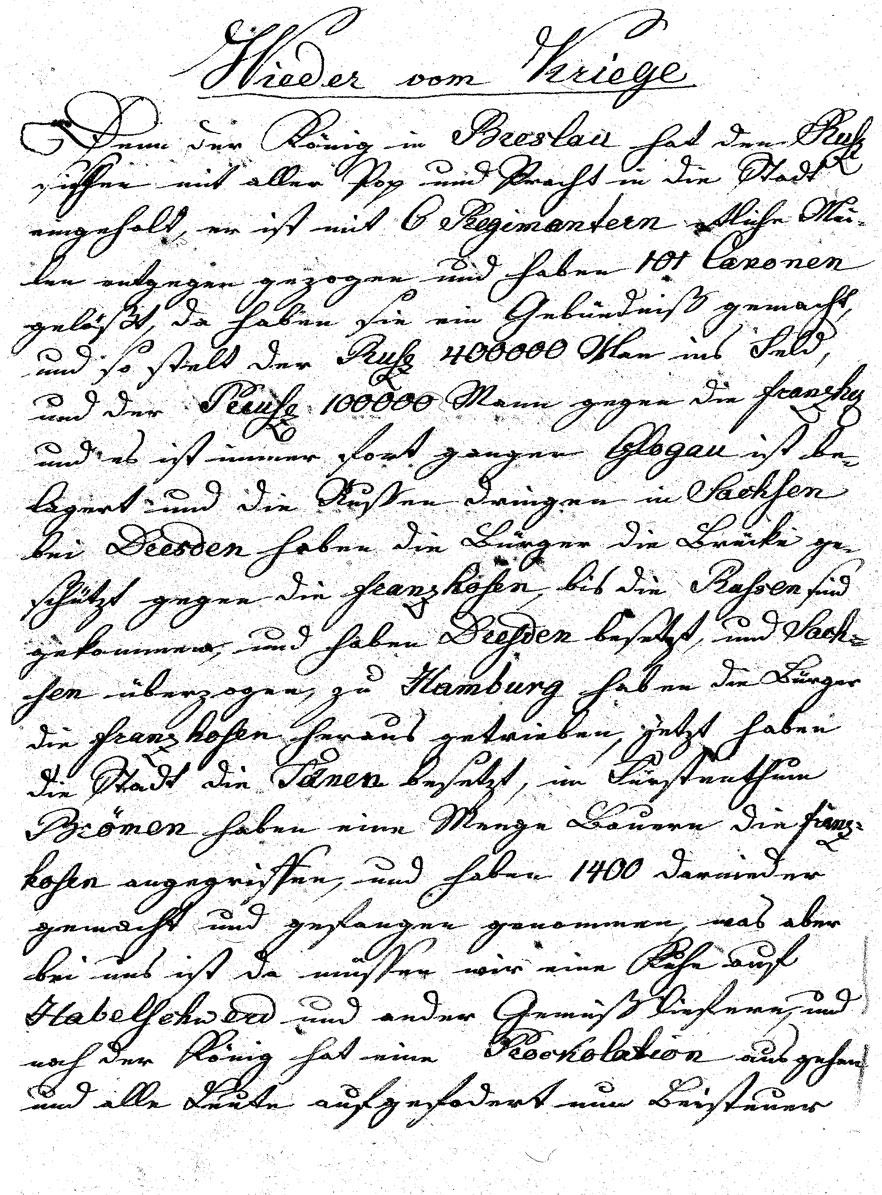 Wieder vom Kriege
Denn der König in Breslau hat den Ruß
sischen mit aller Pop und Pracht in die Stadt
eingeholt, er ist mit 6 Regimantern etliche Mei-
len entgegen gezogen und haben 101 Canonen
gelößt, da haben sie ein Gebündniß gemacht,
und so stelt der Ruß 400000 Man ins Feld,
und der Preuß 100000 Mann gegen die franzho
und es ist immer fort gangen Glogau ist be-
lagert und die Russen dringen in Sachsen
bei Dresden haben die Bürger die Brücke ge-
schützt gegen die franzhosen, bis die Russen sind
gekommen, und haben Dresden besetzt, und Sach-
sen überzogen, zu Hamburg haben die Bürger
die franzhosen heraus getrieben, jetzt haben
die Stadt die Tänen besetzt, im Fürstenthum
Brömen haben eine Menge Bauern die franz-
hosen angegriffen, und haben 1400 darnieder
gemacht und gefangen genommen, was aber
bei uns ist da müssen wir eine Kuhe auf
Habelschwerd und ander Gemüß liefern, und
noch der König hat eine Prockolation ausgehen
und alle Leute aufgefodert um Beisteuer